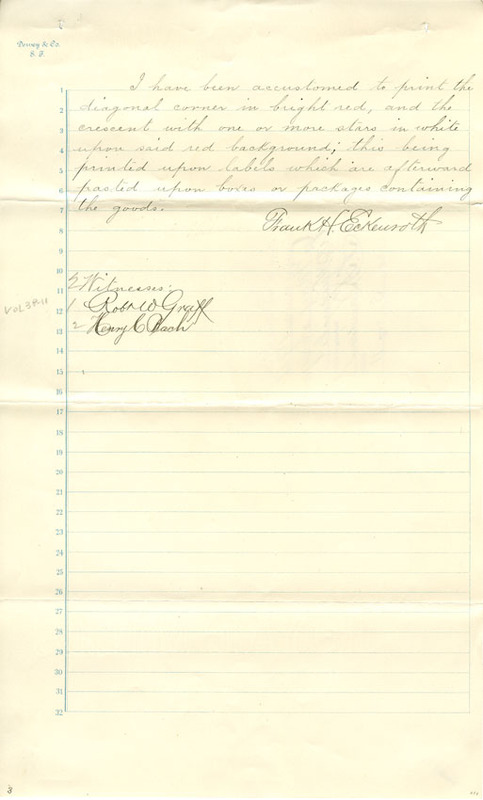 Dewey & Co.
S. F.
1 I have been accustomed to print the
2 diagonal corner in bright red, and the
3 crescent with one or more stars in white
4 upon said red background; this being
5 printed upon labels which are afterward
6 pasted upon boxes or packages containing
7 the goods.
8 Frank H. Eckenroth
9
10
2 Witnesses:
11
1 Robt W Graff
12 VOL 3 P. 11
2 Henry C.
13
14
15
16
17
18
19
20
21
22
23
24
25
26
27
28
29
30
31
32
3